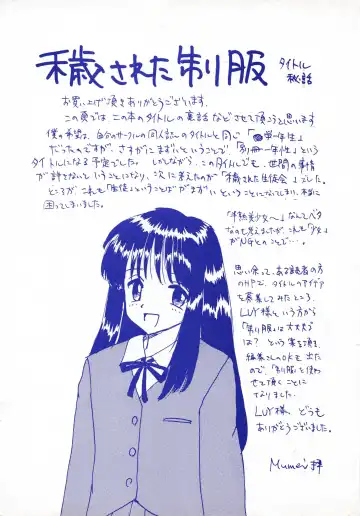 穢された制服
タイトル
秘話
お買い上げ頂きありがとうございます。
この頁では この本のタイトルの裏話などさせて頂こうと思います
僕の希望は、自分のサークルの同人誌のタイトルと同じ「
だったのですが、さすがにまずいということで「別冊一年生」という
タイトルになる予定でした。しかしながら、このタイトルでも、世間の事情
が許さないということになり、次に考えたのが「汚された生徒会」でした。
ところが これも「生徒」ということばがまずいということになってしまい、本当に
困ってしまいました。
「半熟美少女へ」なんてベタ
なのも考えましたが、これも「少女」
がNGとのことで…。
思い余って、ある読者の方
のHPで、タイトルのアイデア
を募集してみたところ、
LUY様という方から
「制服」は大丈夫
は？という案を頂き、
編集さんのOKも出た
ので、「制服」を使わ
せて頂くことに
なりました。
LUY様、どうも
ありがとうございました。
Mumei 拝